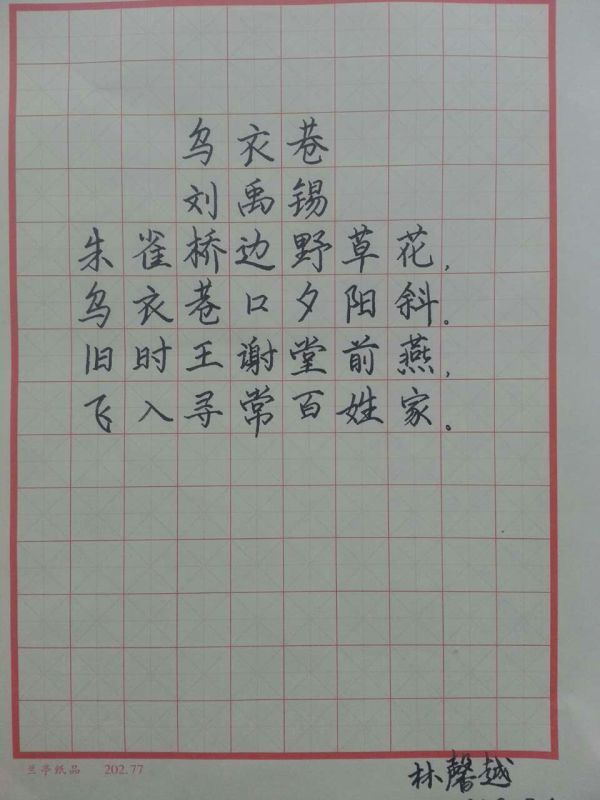 乌衣巷
刘禹锡
朱雀桥边野草花,
乌衣巷口夕阳斜。
旧时王谢堂前燕,
飞入寻常百姓家。
兰亭纸品 202.77
林馨越